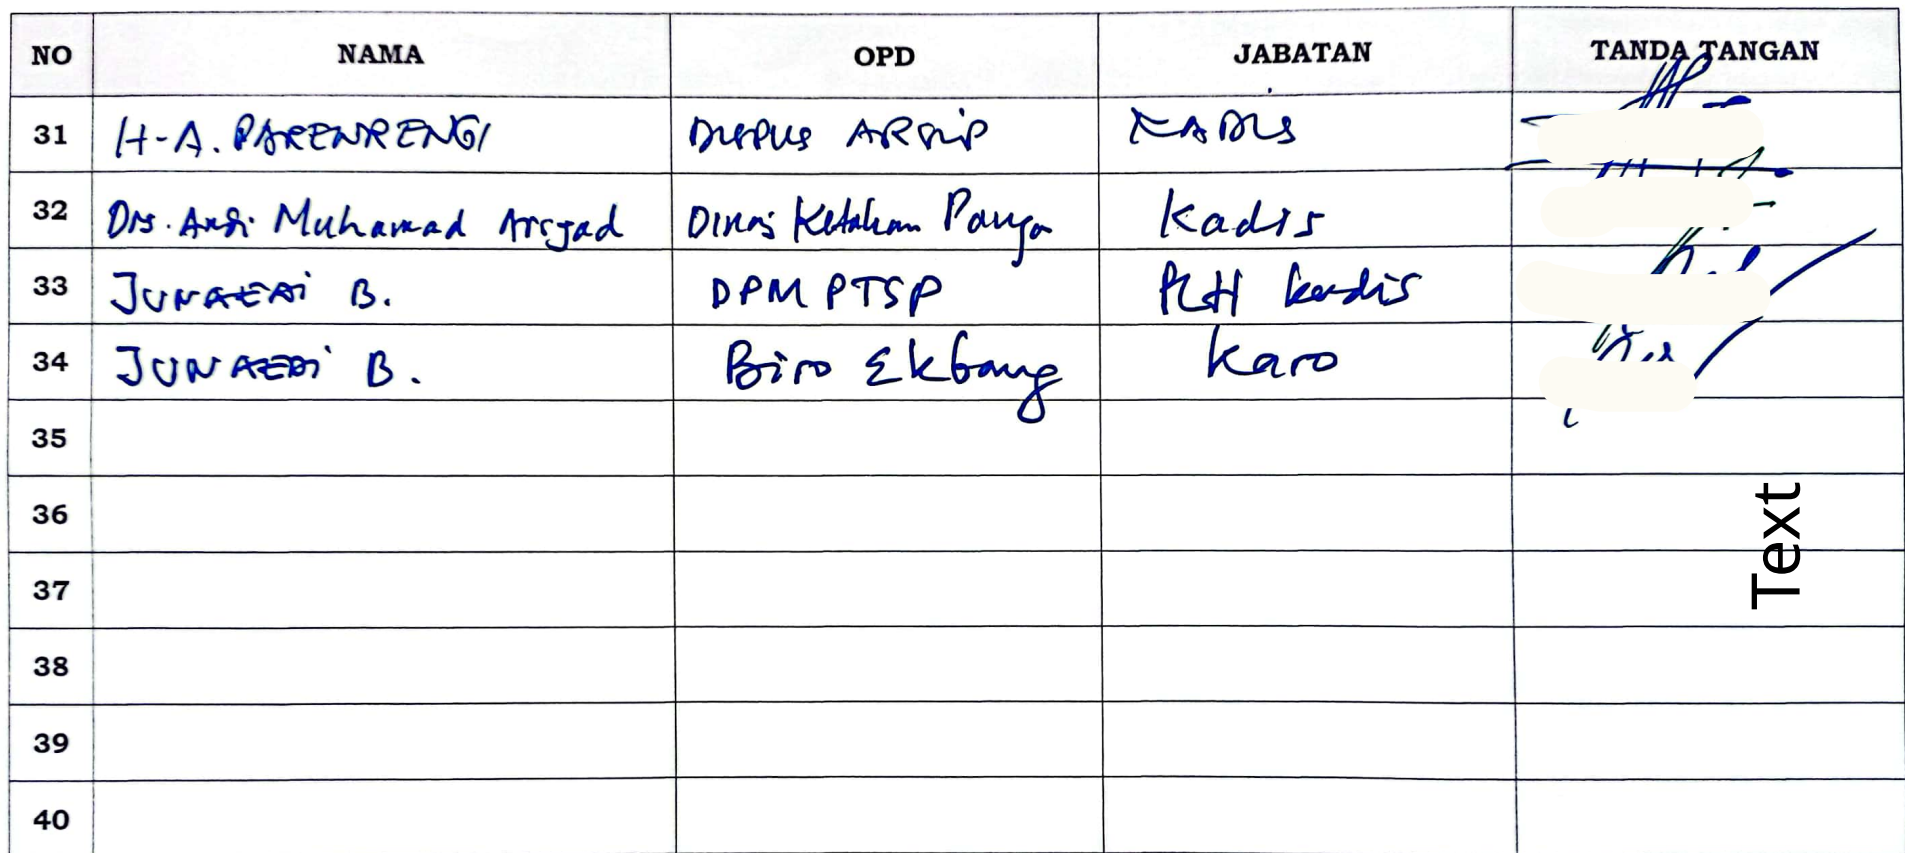 NO NAMA OPD JABATAN TANDA TANGAN
31 H-A. PARENRENGI DISPUS ARSIP KADIS
32 Drs. Andi Muhamad Arsyad Dinas Ketahan Panga Kadis
33 JUNAEDI B. DPM PTSP PLH kadis
34 JUNAEDI B. Biro Ekbang Karo
35
36
37
38
39
40
Text